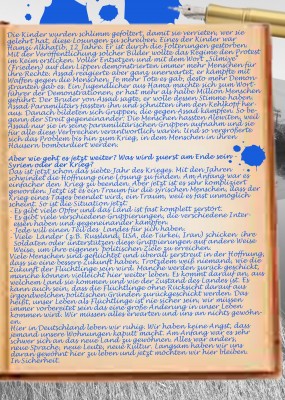 Die Kinder wurden schlimm gefoltert, damit sie verraten, wer sie
gelehrt hat, diese Losungen zu schreiben. Eines der Kinder war
Hamza Alkhatib, 12 Jahre. Er ist durch die Folterungen gestorben.
Mit der Veröffentlichung solcher Bilder wollte das Regime den Protest
im Keim ersticken. Voller Entsetzen und mit dem Wort „Silmiye"
(Frieden) auf den Lippen demonstrierten immer mehr Menschen für
ihre Rechte. Assad reagierte aber ganz unerwartet, er kämpfte mit
Waffen gegen die Menschen. Je mehr Tote es gab, desto mehr Demon-
stranten gab es. Ein Jugendlicher aus Hama machte sich zum Wort-
führer der Demonstrationen, er hat mehr als halbe Million Menschen
geführt. Der Bruder von Assad sagte, er wolle dessen Stimme haben.
Assad Paramilitärs fassten ihn und schnitten ihm den Kehlkopf her-
aus. Danach bildeten sich Gruppen, um gegen Assad kämpfen. So be-
gann der Streit gegeneinander. Die Menschen hassten Alewiten, weil
sie nur sie in seine paramilitärischen Gruppen aufnahm und sie
für alle diese Verbrechen verantwortlich waren. Und so vergrößerte
sich das Problem bis hin zum Krieg, in dem Menschen in ihren
Häusern bombardiert werden.
Aber wie geht es jetzt weiter? Was wird zuerst am Ende sein
Syrien oder der Krieg?
Das ist jetzt schon das siebte Jahr des Krieges. Mit den Jahren
schwindet die Hoffnung eine Lösung zu finden. Am Anfang war es
einfacher den Krieg zu beenden. Aber jetzt ist es sehr kompliziert
geworden. Jetzt ist es ein Traum für die syrischen Menschen, dass der
Krieg eines Tages beendet wird, ein Traum, weil es fast unmöglich
scheint. So ist die Situation jetzt:
Es gibt viele Opfer und das Land ist fast komplett zerstört.
Es gibt viele verschiedene Gruppierungen, die verschiedene Inter-
essen haben und gegeneinander kämpfen.
Jede will einen Teil des Landes für sich haben.
Viele Länder (z.B. Russland, USA, die Türkei, Iran) schicken ihre
Soldaten oder unterstützen diese Gruppierungen auf andere Weise
Weise, um ihre eigenen politischen Ziele zu erreichen.
Viele Menschen sind geflüchtet und überall zerstreut in der Hoffnung,
dass sie eine bessere Zukunft haben. Trotzdem weiß niemand, wie die
Zukunft der Flüchtlinge sein wird. Manche werden zurück geschickt,
manche können vielleicht hier weiter leben. Es kommt darauf an, aus
welchem Land sie kommen und wie der Zustand des Landes ist. Es
kann auch sein, dass die Flüchtlinge ohne Rücksicht darauf aus
irgendwelchen politischen Gründen zurückgeschickt werden. Das
heißt, unser Leben als Flüchtlinge ist nie sicher sein, wir müssen
immer vorbereitet sein das eine große Änderung in unser Leben
kommen wird. Wir müssen alles erwarten und uns an nichts gewöhn-
en.
Hier in Deutschland leben wir ruhig. Wir haben keine Angst, dass
jemand unsere Wohnungen kaputt macht. Am Anfang war es sehr
schwer sich an das neue Land zu gewöhnen. Alles war anders,
neue Sprache, neue Leute, neue Kultur. Langsam haben wir uns
daran gewöhnt hier zu leben und jetzt möchten wir hier bleiben.
In Sicherheit.